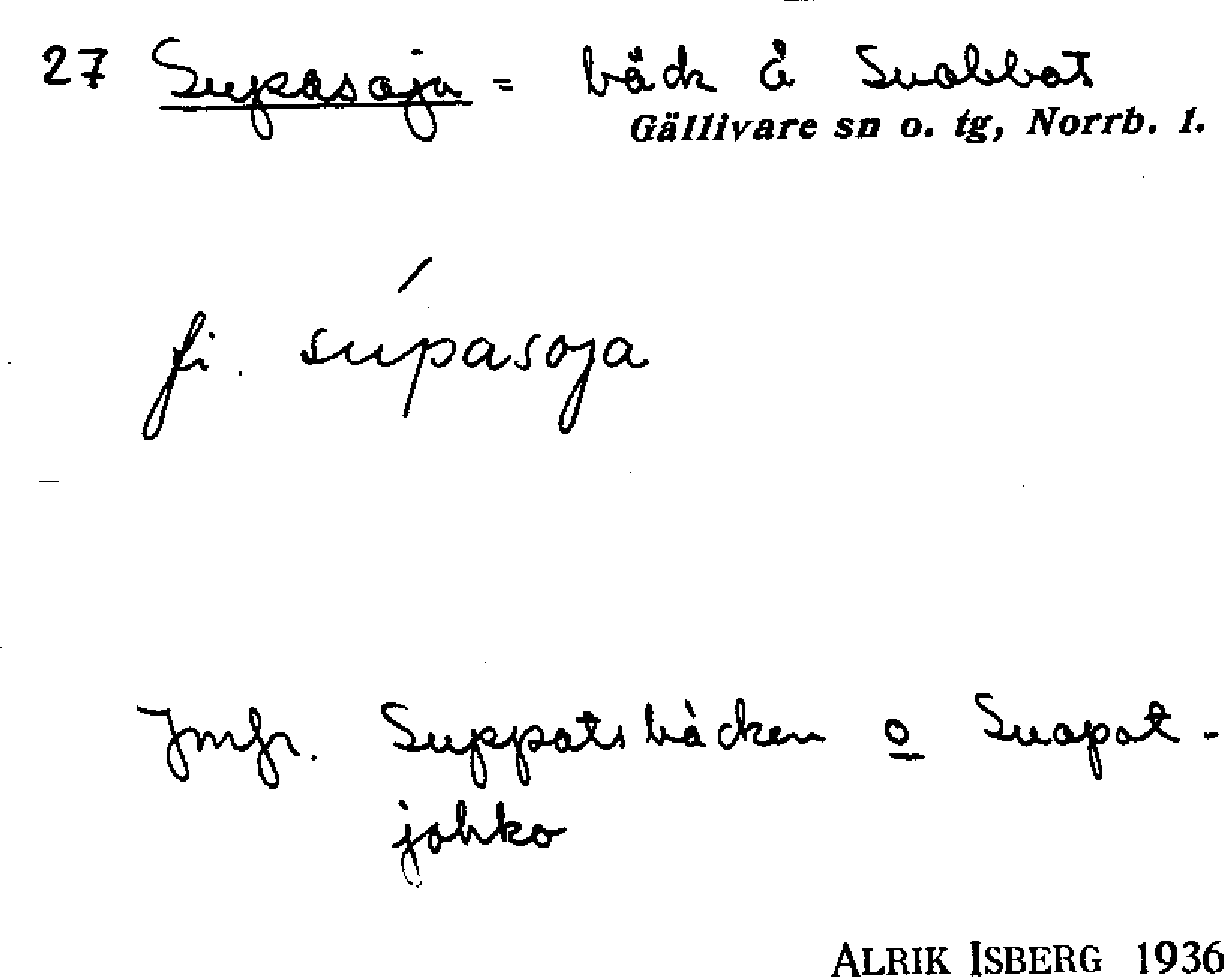 27 Supasoja = bäck å Suobbat
Gällivare sn o. tg, Norrb. l.
fi. súpasoja
Jmfr. Suppatsbäcken o Suopat-
johko
ALRIK ISBERG 1936